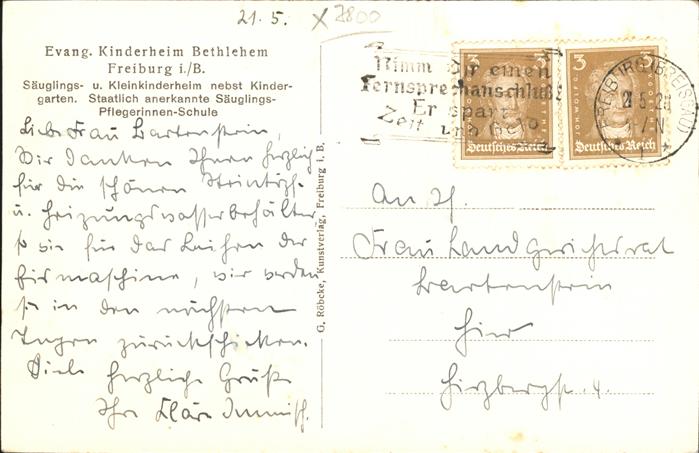 21. 5. x 2800
Evang. Kinderheim Bethlehem
Freiburg i./B.
Säuglings- u. Kleinkinderheim nebst Kinder-
garten. Staatlich anerkannte Säuglings-
Pflegerinnen-Schule
Liebe Frau Bartenstein,
Wir danken Ihnen herzlich
für die schönen
u. Heizungswasserbehälter
so wie für das Leihen der
Eismaschine, wir werden
sie in den nächsten
Tagen zurückschicken.
Viele herzliche Grüße
Ihre Kläre
G. Röbcke, Kunstverlag, Freiburg i. B.
Nimm Dir einen
Fernsprechanschluß!
Er spart
Zeit und Geld
3 3
JOH. WOLFG.
Deutsches Reich
3 3
JOH. WOLFG.
Deutsches Reich
FREIBURG (BREISGAU)
21 5 28
7 N
An H.
Frau Landgerichtsrat
Bartenstein
Hier